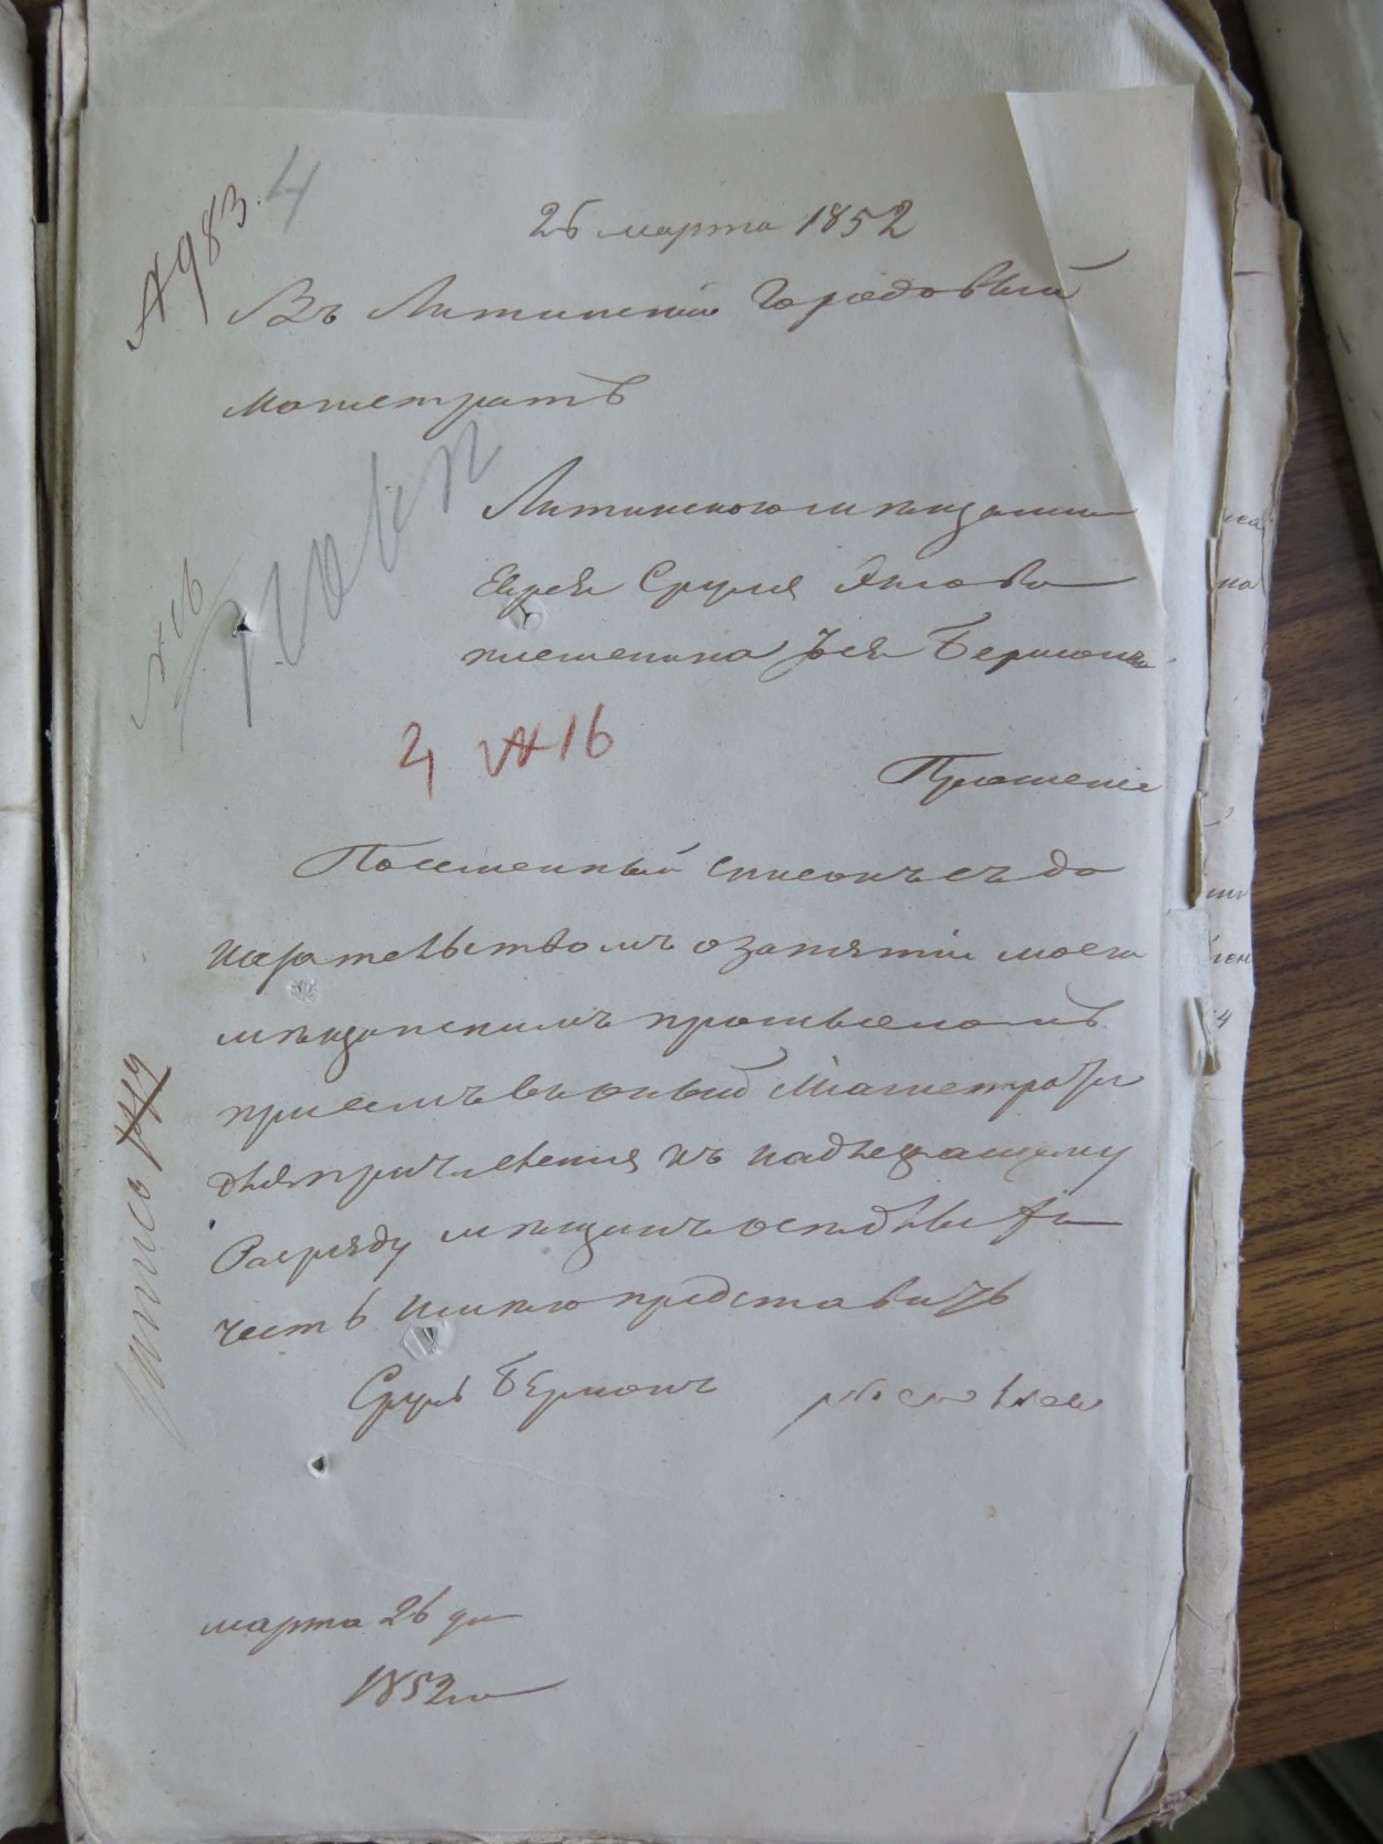 № 983. 4
26 марта 1852
Въ Литинскій Городовый
Магистратъ
Литинского мѣщанина
Еврея Сруля Янкова
племенника Іося Берман
№ 16
4 № 16
Прошеніе
Посемейный списокъ съ до
казательствомъ о занятіи моем
мѣщанскимъ промысломъ
при семъ въ оный Магистратъ
для причисления къ надлежащему
Разряду мѣщанъ осѣдлыхъ
честь имѣю представить
Сруль Берманъ
марта 26 дн
1852 го